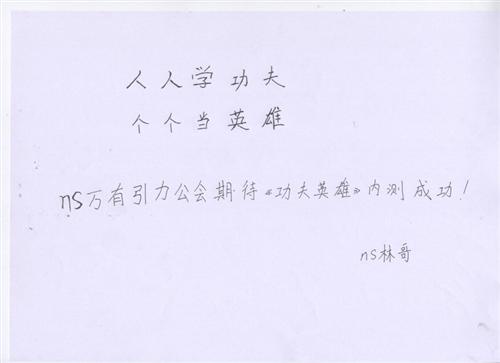 人人学功夫
个个当英雄
ns万有引力公会期待《功夫英雄》内测成功！
ns林哥